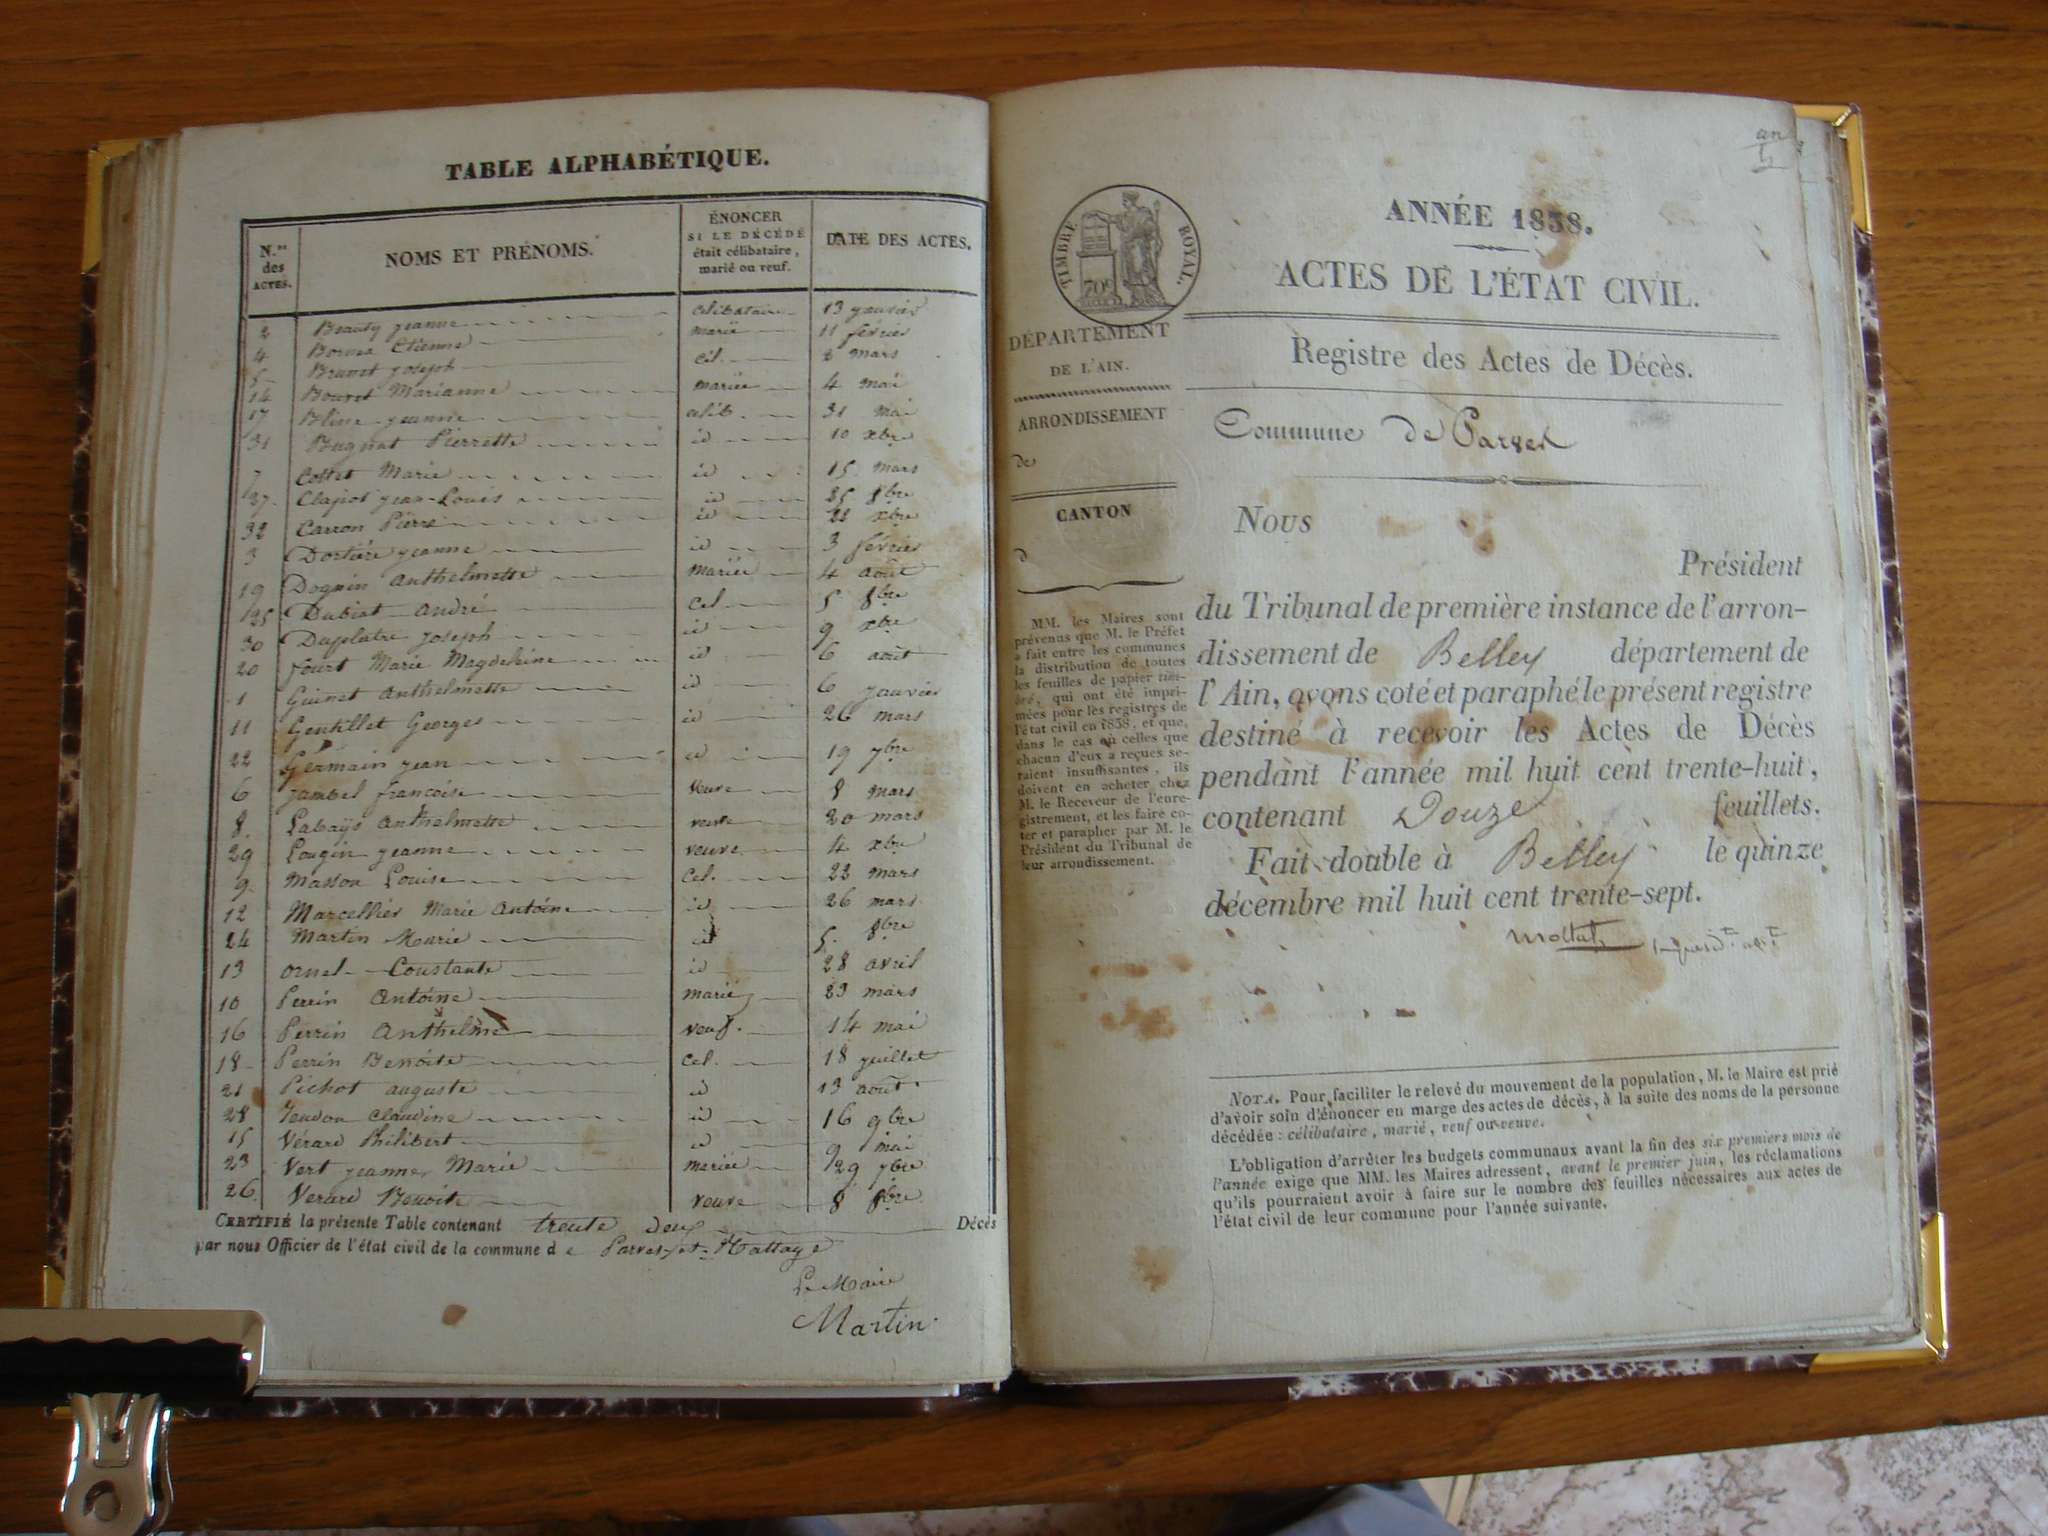 TABLE ALPHABÉTIQUE.
N.os des ACTES. NOMS ET PRÉNOMS. ÉNONCER SI LE DÉCÉDÉ était célibataire, marié ou veuf. DATE DES ACTES.
2 Beauty jeanne célibataire 13 janvier
4 Etienne marié 11 février
5 Brunet joseph cél. 2 mars
14 Bouvet Marianne mariée 4 mai
17 Bline jeanne célib. 31 mai
31 Bugnat Pierrette id 10 xbre
7 Cottet Marie id 15 mars
27. Clapot jean-Louis id 25 8bre
32 Carron Pierre id 21 xbre
3 Dortière jeanne id 3 février
19 Dognin anthelmette mariée 4 août
25 Dubiat andré cel. 5 8bre
30 Duplatre joseph id 9 xbre
20 fourt Marie Magdeleine id 6 août
1 Guinet anthelmette id 6 janvier
11 Gentillet Georges id 26 mars
22 Germain jean id 19 7bre
6 jambel francoise veuve 8 mars
8. Labaÿs anthelmette veuve 20 mars
29 Lougin jeanne veuve 4 xbre
9 Masson Louise cel. 22 mars
12 Marcellier Marie antoine id 26 mars
24 Martin Marie id 5. 8bre
13 ornel Constante id 28 avril
10 Perrin antoine marié 23 mars
16 Perrin anthelme veuf. 14 mai
18 Perrin Benoite cel. 18 juillet
21 Pichot auguste id 13 août
28 claudine id 16 9bre
15 Vérard Philibert id 9 mai
23 Vert jeanne Marie mariée 29 7bre
26. Verard Benoite veuve 8 8bre
CERTIFIÉ la présente Table contenant trente deux Décès
par nous Officier de l'état civil de la commune de Parves-et-Nattage
Le Maire
Martin
TIMBRE ROYAL.
70c
ANNÉE 1838.
ACTES DE L'ÉTAT CIVIL.
DÉPARTEMENT
DE L'AIN.
ARRONDISSEMENT
de
CANTON
d
MM. les Maires sont
prévenus que M. le Préfet
a fait entre les communes
la distribution de toutes
les feuilles de papier tim-
bré, qui ont été impri-
mées pour les registres de
l'état civil en 1838, et que,
dans le cas où celles que
chacun d'eux a reçues se-
raient insuffisantes, ils
doivent en acheter chez
M. le Receveur de l'enre-
gistrement, et les faire co-
ter et parapher par M. le
Président du Tribunal de
leur arrondissement.
Registre des Actes de Décès.
Commune de Parves
Nous
Président
du Tribunal de première instance de l'arron-
dissement de Belley département de
l'Ain, avons coté et paraphé le présent registre
destiné à recevoir les Actes de Décès
pendant l'année mil huit cent trente-huit,
contenant Douze feuillets.
Fait double à Belley le quinze
décembre mil huit cent trente-sept.
NOTA. Pour faciliter le relevé du mouvement de la population, M. le Maire est prié
d'avoir soin d'énoncer en marge des actes de décès, à la suite des noms de la personne
décédée : célibataire, marié, veuf ou veuve.
L'obligation d'arrêter les budgets communaux avant la fin des six premiers mois de
l'année exige que MM. les Maires adressent, avant le premier juin, les réclamations
qu'ils pourraient avoir à faire sur le nombre des feuilles nécessaires aux actes de
l'état civil de leur commune pour l'année suivante.